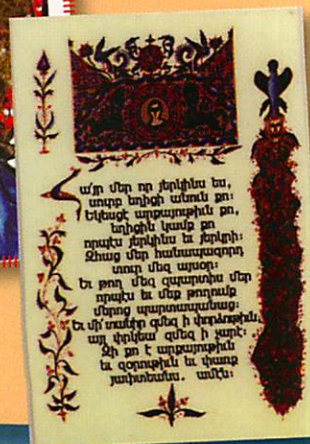 Հայր մեր որ յերկինս ես,
սուրբ եղիցի անուն քո:
Եկեսցէ արքայութիւն քո,
եղիցին կամք քո
որպէս յերկինս եւ յերկրի:
Զհաց մեր հանապազորդ
տուր մեզ այսօր:
Եւ թող մեզ զպարտիս մեր
որպէս եւ մեք թողումք
մերոց պարտապանաց:
Եւ մի՛ տանիր զմեզ ի փորձութիւն,
այլ փրկեա՛ զմեզ ի չարէ:
Զի քո է արքայութիւն
եւ զօրութիւն եւ փառք
յաւիտեանս. ամէն: